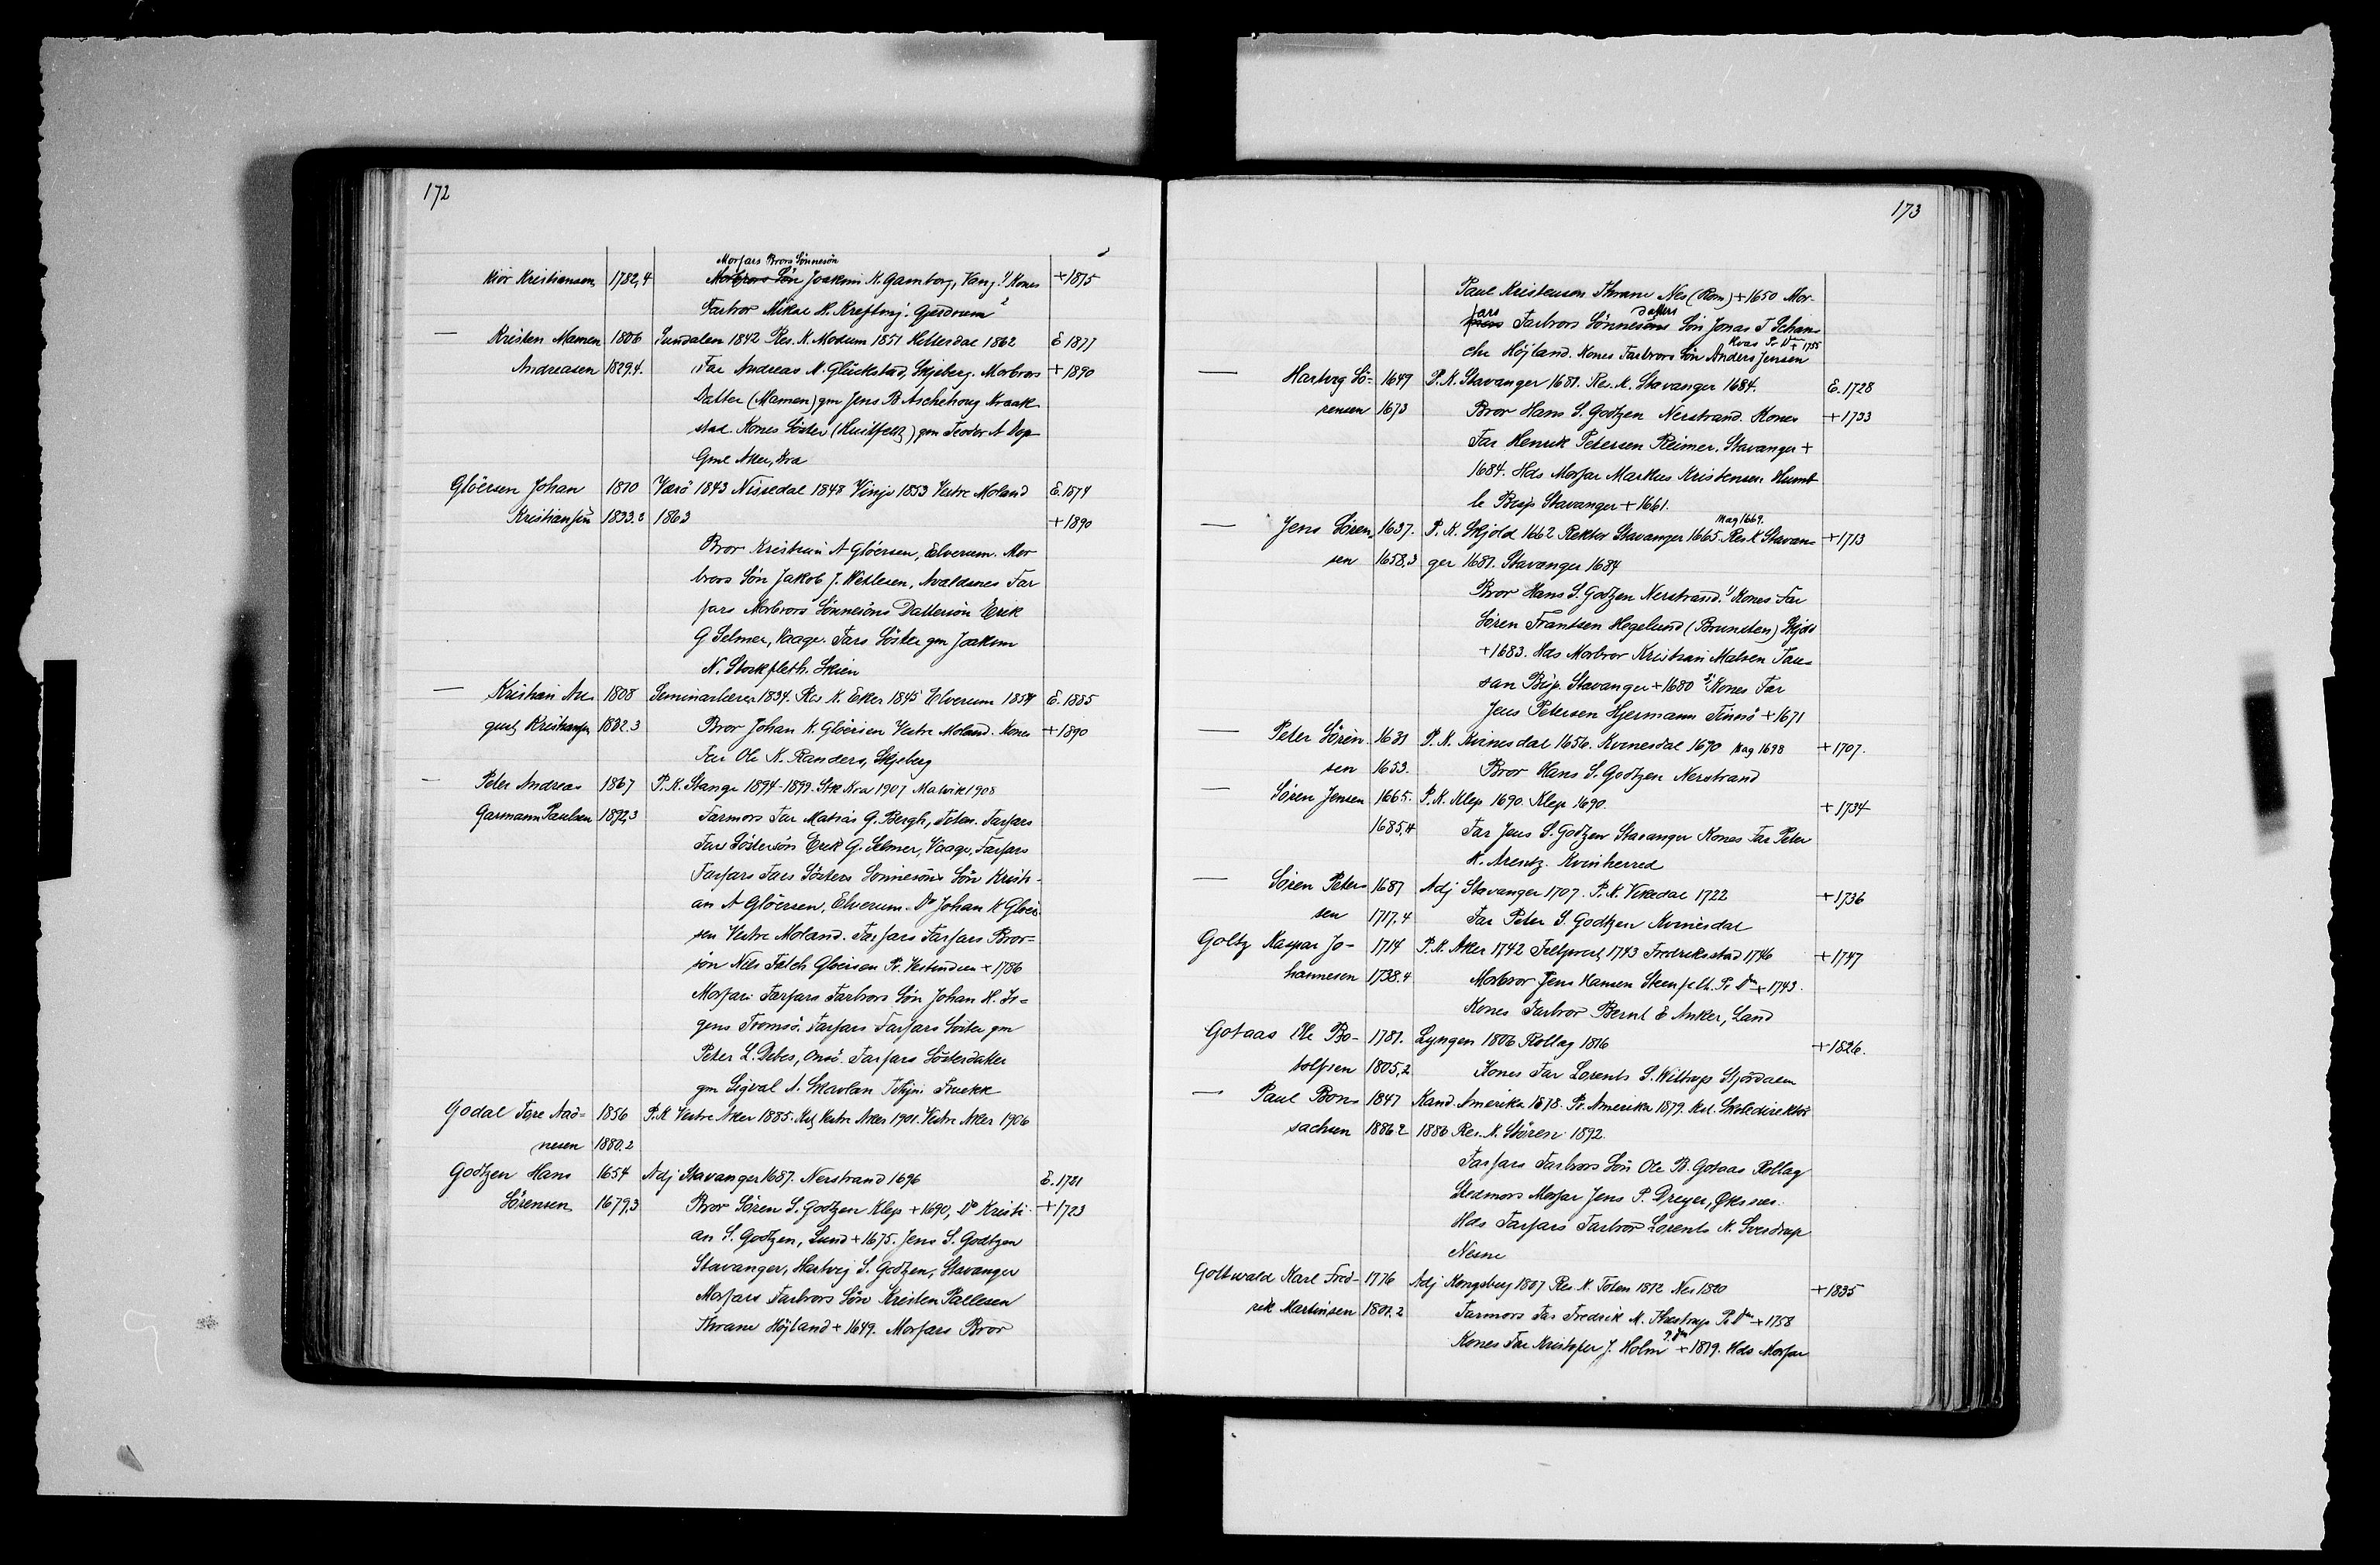 172
Morfars Brors Sönnesön
Kiör Kristiansen 1782,4 Morbrors Sön Joakim K. Gamborg, Vang. 1) Kones +1875
Farbror Mikal H. Krefting. Gjerdrum
— Kristen Mamen 1806 Sundalen 1842 Res. K. Modum 1851 Hitterdal 1862 E 1877
Andreasen 1829,4. Far Andreas N. Glückstad, Skjeberg. Morbrors +1890
Datter (Mamen) gm Jens B Aschehoug Kraak
stad. Kones Söster (Huitfeldt) gm Teodor A Dop
Gml Aker, Kra
Glöersen Johan 1810 Værö 1843 Nissedal 1848 Vinje 1853 Vestre Moland E. 1874
Kristiansen 1833.2 1863 +1890
Bror Kristian A Glöersen, Elverum. Mor
brors Sön Jakob J. Wetlesen, Avaldsnes Far
fars Morbrors Sönnesöns Dattersön Erik
G Selmer, Vaage. Fars Söster gm Joakim
N. Stockfleth. Skien
— Kristian Au 1808 Seminarlærer 1834. Res K. Eker 1845 Elverum 1854 E. 1885
gust Kristiansen 1832.3 Bror Johan K. Glöersen Vestre Moland. Kones +1890
Far Ole K. Randers, Skjeberg
— Peter Andreas 1867 P. K. Stange 1894-1899. Stk Kra 1907 Malvik 1908
Garmann Paulsen 1892,3 Farmors Far Matias G. Bergh, Toten. Farfars
Fars Söstersön Erik G. Selmer, Vaage, Farfars
Farfars Fars Sösters Sönnesöns Sön Kristi-
an A Glöersen, Elverum. Do Johan K Glöer
sen Vestre Moland. Farfars Farfars Bror=
sön Nils Falch Glöersen Pr. Vestindien + 1786
Morfars Farfars Farbrors Sön Johan H. Ir=
gens Tromsö. Farfars Farfars Söster gm
Peter L. Debes, Onsö. Farfars Sösterdatter
gm Sigval A. Skavlan
Godal Tore Aad= 1856 P. K Vestre Aker 1885. Kst Vestre Aker 1901. Vestre Aker 1906
nesen 1880.2
Godtzen Hans 1654 Adj Stavanger 1687. Nerstrand 1696 E. 1721
Sörensen 1679,3 Bror Sören S. Godtzen Klep +1690, Do Kristi- +1723
an S. Godtzen, Lund +1675. Jens S. Godtzen
Stavanger, Hartvig S. Godtzen, Stavanger
Morfars Farbrors Sön Kristen Pallesen
Thrane Höjland + 1649. Morfars Bror
173
Paul Kristensen Thrane Nes (Rom) +1650 Mor-
fars Farbrors Sönnesöns Datters Sön Jonas T Schan
che Höjland. Kones Farbrors Sön Anders Jensen Kvas Pr Dm + 1755
— Hartvig Sö- 1649 P. K. Stavanger 1681. Res. K. Stavanger 1684. E. 1728
rensen 1673 Bror Hans S. Godtzen Nerstrand. Kones +1733
Far Henrik Petersen Reimer. Stavanger +
1684. Hds Morfar Markus Kristensen Humb
le Bisp Stavanger +1661.
— Jens Sören 1637. P. K. Skjold 1662 Rektor Stavanger 1665. Mag 1669. Res K Stavan= +1713
sen 1658,3 ger 1681. Stavanger 1684
Bror Hans S. Godtzen Nerstrand. 1) Kones Far
Sören Frantsen Hogelund (Brunsten) Skjold
+1683. Hds Morbror Kristian Matsen Tau=
san Bisp. Stavanger +1680 2) Kones Far
Jens Petersen Hjermann Finnö +1671
— Peter Sören 1631 P. K. Kvinesdal 1656. Kvinesdal 1670 Mag 1698 +1707.
sen 1653. Bror Hans S. Godtzen Nerstrand
— Sören Jensen 1665. P. K. Klep 1690. Klep 1690. +1734
1685,4 Far Jens S. Godtzen Stavanger Kones Far Peter
K. Arentz. Kvinherred
— Sören Peter= 1687 Adj Stavanger 1707. P. K. Vikedal 1722 +1736
sen 1717,4 Far Peter S. Godtzen Kvinesdal
Goltz Kaspar Jo- 1714 P. K. Aker 1742 Feltprest 1743 Frederiksstad 1746 +1747
hannesen 1738.4 Morbror Jens Hansen Steenfelt. Pr Dm +1743.
Kones Farbror Bernt E Anker, Land
Gotaas Ole Bo- 1781. Lyngen 1806 Rollag 1816 +1826.
tolfsen 1805,2 Kones Far Lorents S. Wiltrup Stjördalen
— Paul Bons 1847 Kand. Amerika 1878. Pr. Amerika 1879. Kst. Skoledirektör
sachsen 1886.2 1886 Res. K. Stören 1892.
Farfars Farbrors Sön Ole B. Gotaas Rollag
Stedmors Morfar Jens P. Dreyer, Öksnes.
Hds Farfars Farbror Lorents N. Sverdrup
Nesne
Gottwald Karl Fred- 1776 Adj Kongsberg 1807 Res. K. Toten 1812 Nes 1820 +1835
rik Martinsen 1801.2 Farmors Far Fredrik M. Thestrup Pr Dm +1758
Kones Far Kristofer J. Holm P. Dm +1819. Hds Morfar